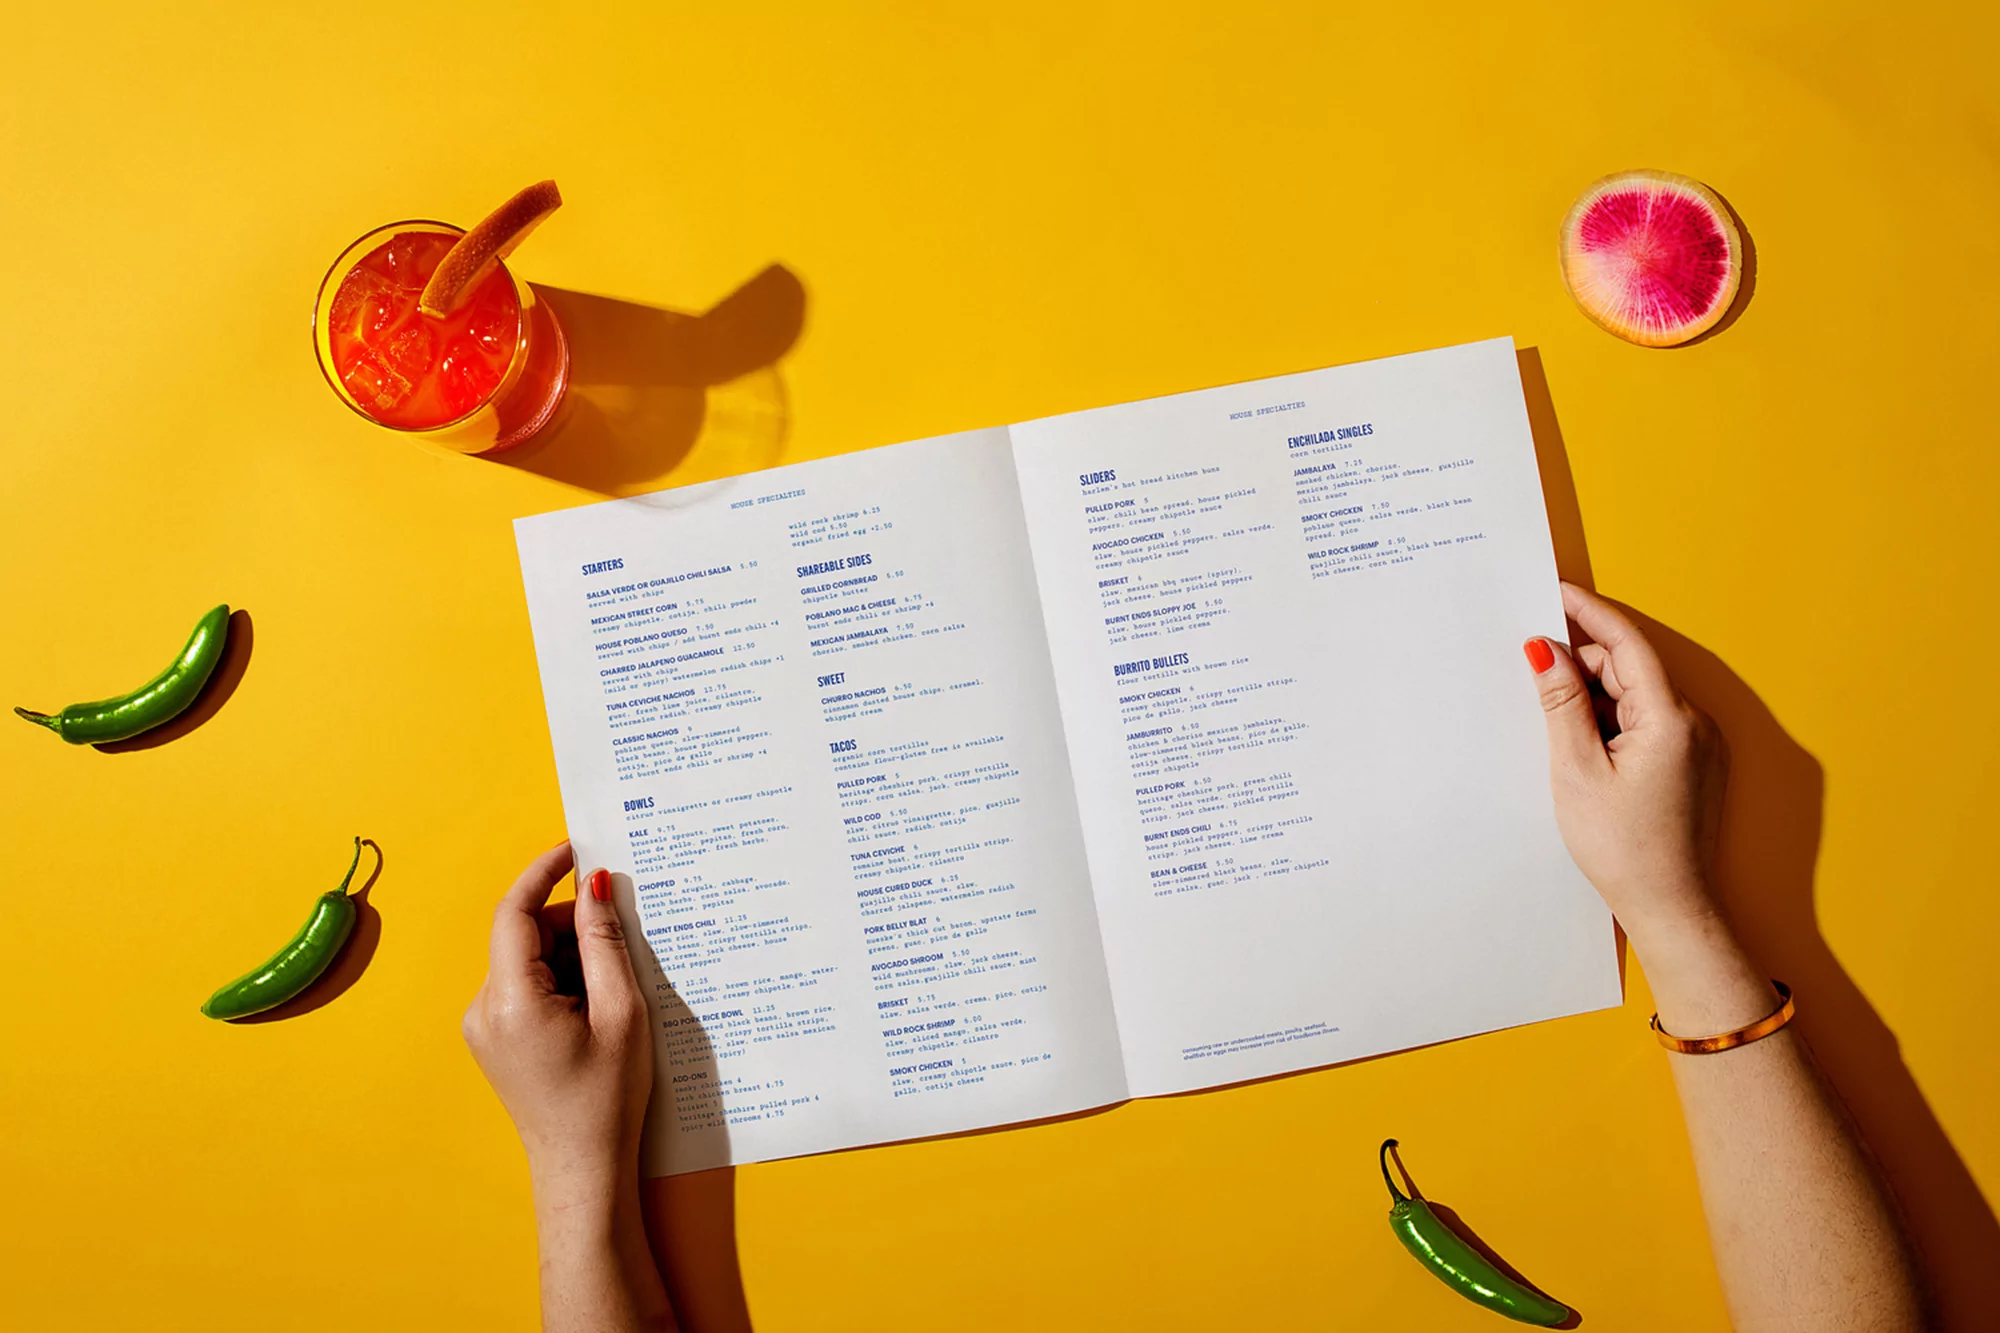 HOUSE SPECIALTIES
STARTERS
SALSA VERDE OR GUAJILLO CHILI SALSA 5.50
served with chips
MEXICAN STREET CORN 5.75
creamy chipotle, cotija, chili powder
HOUSE POBLANO QUESO 7.50
served with chips / add burnt ends chili +4
CHARRED JALAPENO GUACAMOLE 12.50
served with chips
(mild or spicy) watermelon radish chips +1
TUNA CEVICHE NACHOS 12.75
guac, fresh lime juice, cilantro,
watermelon radish, creamy chipotle
CLASSIC NACHOS 9
poblano queso, slow-simmered
black beans, house pickled peppers,
cotija, pico de gallo
add burnt ends chili or shrimp +4
BOWLS
citrus vinaigrette or creamy chipotle
KALE 9.75
brussels sprouts, sweet potatoes,
pico de gallo, pepitas, fresh corn,
arugula, cabbage, fresh herbs,
cotija cheese
CHOPPED 9.75
romaine, arugula, cabbage,
fresh herbs, corn salsa, avocado,
jack cheese, pepitas
BURNT ENDS CHILI 11.25
brown rice, slaw, slow-simmered
black beans, crispy tortilla strips,
lime crema, jack cheese, house
pickled peppers
POKE 12.25
tuna, avocado, brown rice, mango, water-
melon radish, creamy chipotle, mint
BBQ PORK RICE BOWL 11.25
slow-simmered black beans, brown rice,
pulled pork, crispy tortilla strips,
jack cheese, slaw, corn salsa mexican
bbq sauce (spicy)
ADD-ONS
smoky chicken 4
herb chicken breast 4.75
brisket 5
heritage cheshire pulled pork 4
spicy wild shrooms 4.75
wild rock shrimp 6.25
wild cod 5.50
organic fried egg +2.50
SHAREABLE SIDES
GRILLED CORNBREAD 5.50
chipotle butter
POBLANO MAC & CHEESE 6.75
burnt ends chili or shrimp +4
MEXICAN JAMBALAYA 7.50
chorizo, smoked chicken, corn salsa
SWEET
CHURRO NACHOS 6.50
cinnamon dusted house chips, caramel,
whipped cream
TACOS
organic corn tortillas
contains flour-gluten free is available
PULLED PORK 5
heritage cheshire pork, crispy tortilla
strips, corn salsa, jack, creamy chipotle
WILD COD 5.50
slaw, citrus vinaigrette, pico, guajillo
chili sauce, radish, cotija
TUNA CEVICHE 6
romaine boat, crispy tortilla strips,
creamy chipotle, cilantro
HOUSE CURED DUCK 6.25
guajillo chili sauce, slaw,
charred jalapeno, watermelon radish
PORK BELLY BLAT 6
nueske's thick cut bacon, upstate farms
greens, guac, pico de gallo
AVOCADO SHROOM 5.50
wild mushrooms, slaw, jack cheese,
corn salsa,guajillo chili sauce, mint
BRISKET 5.75
slaw, salsa verde, crema, pico, cotija
WILD ROCK SHRIMP 6.00
slaw, sliced mango, salsa verde,
creamy chipotle, cilantro
SMOKY CHICKEN 5
slaw, creamy chipotle sauce, pico de
gallo, cotija cheese
HOUSE SPECIALTIES
SLIDERS
harlem's hot bread kitchen buns
PULLED PORK 5
slaw, chili bean spread, house pickled
peppers, creamy chipotle sauce
AVOCADO CHICKEN 5.50
slaw, house pickled peppers, salsa verde,
creamy chipotle sauce
BRISKET 6
slaw, mexican bbq sauce (spicy),
jack cheese, house pickled peppers
BURNT ENDS SLOPPY JOE 5.50
slaw, house pickled peppers,
jack cheese, lime crema
BURRITO BULLETS
flour tortilla with brown rice
SMOKY CHICKEN 6
creamy chipotle, crispy tortilla strips,
pico de gallo, jack cheese
JAMBURRITO 6.50
chicken & chorizo mexican jambalaya,
slow-simmered black beans, pico de gallo,
cotija cheese, crispy tortilla strips,
creamy chipotle
PULLED PORK 6.50
heritage cheshire pork, green chili
queso, salsa verde, crispy tortilla
strips, jack cheese, pickled peppers
BURNT ENDS CHILI 6.75
house pickled peppers, crispy tortilla
strips, jack cheese, lime crema
BEAN & CHEESE 5.50
slow-simmered black beans, slaw,
corn salsa, guac, jack , creamy chipotle
ENCHILADA SINGLES
corn tortillas
JAMBALAYA 7.25
smoked chicken, chorizo,
mexican jambalaya, jack cheese, guajillo
chili sauce
SMOKY CHICKEN 7.50
poblano queso, salsa verde, black bean
spread, pico
WILD ROCK SHRIMP 8.50
guajillo chili sauce, black bean spread,
jack cheese, corn salsa
consuming raw or undercooked meats, poultry, seafood,
shellfish or eggs may increase your risk of foodborne illness.